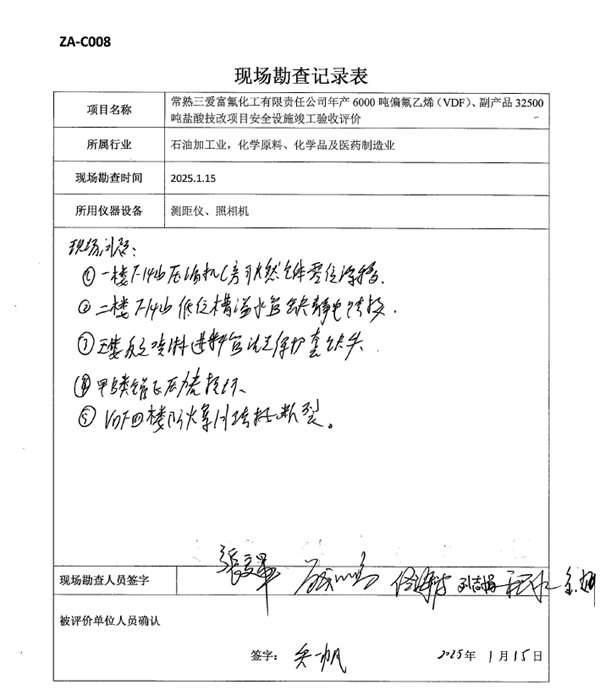 ZA-C008
现场勘查记录表
项目名称
常熟三爱富氟化工有限责任公司年产 6000 吨偏氟乙烯（VDF）、副产品 32500
吨盐酸技改项目安全设施竣工验收评价
所属行业
石油加工业，化学原料、化学品及医药制造业
现场勘查时间
2025.1.15
所用仪器设备
测距仪、照相机
现场问题：
① 一楼 压缩机房可燃气体
② 二楼 低位槽溢水管缺静电跨接.
③ 三楼 进料管法兰保护套缺失
④
⑤ VDF四楼防火 跨接断裂。
现场勘查人员签字
被评价单位人员确认
签字：
2025年 1月15日